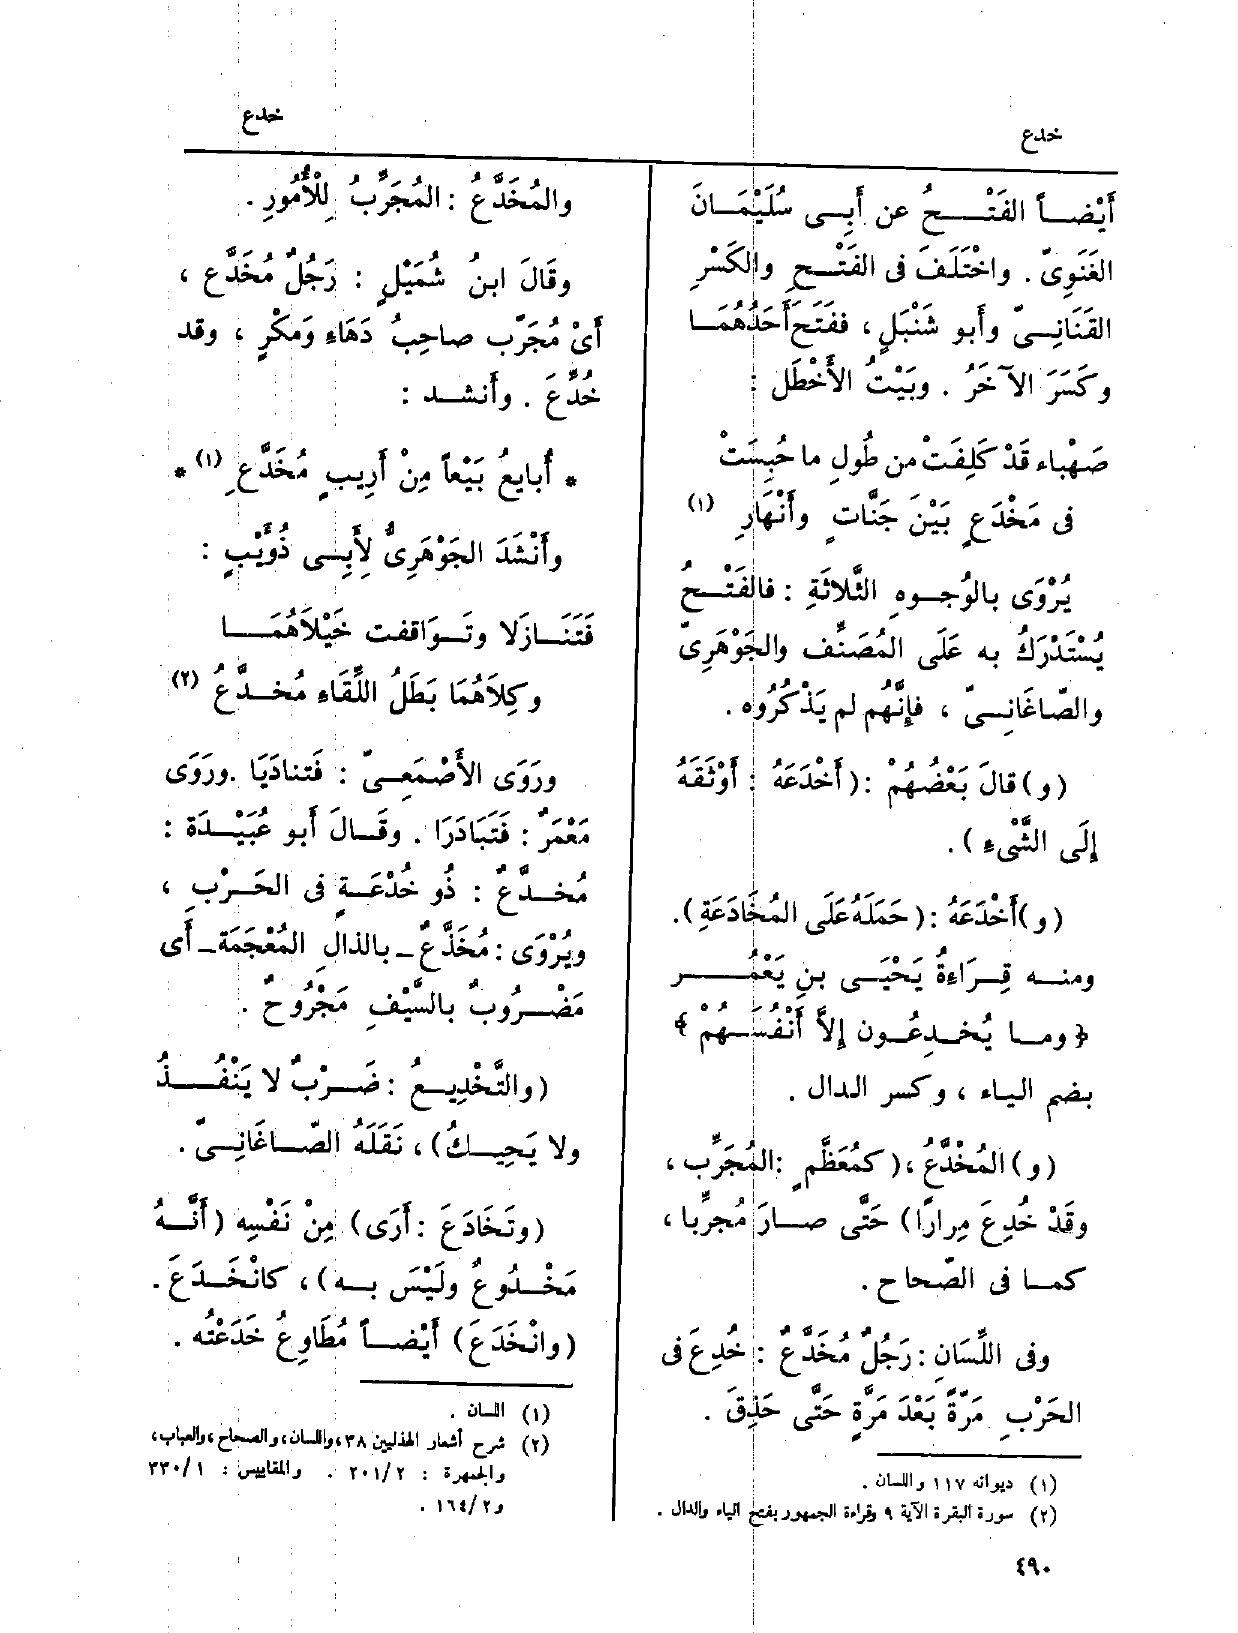 خدع
خدع
أَيْضاً الفَتْحُ عن أَبِى سُلَيْمَانَ
الغَنَوِىّ . واخْتَلَفَ فى الفَتْحِ والكَسْرِ
القَنَانِىّ وأبو شَنْبَلٍ ، ففَتَحَ أَحَدُهُمَا
وكَسَرَ الآخَرُ . وبَيْتُ الأَخْطَل :
صَهْباء قَدْ كَلِفَتْ من طُولِ ما حُبِسَتْ
فى مَخْدَعٍ بَيْنَ جَنَّاتٍ وأَنْهَارِ (١)
يُرْوَى بالوُجوهِ الثَّلاثَةِ : فالفَتْحُ
يُسْتَدْرَكُ به عَلَى المُصَنِّف والجَوْهَرِىّ
والصّاغَانِىّ ، فإِنَّهُم لم يَذْكُرُوه .
(و) قالَ بَعْضُهُمْ : (أَخْدَعَهُ : أَوْثَقَهُ
إِلَى الشَّىْءِ ) .
(و) أَخْدَعَهُ : (حَمَلَهُ عَلَى المُخَادَعَةِ) .
ومنه قِرَاءَةُ يَحْيَى بنِ يَعْمُر
﴿ وما يُخدِعُون إِلاَّ أَنْفُسَهُمْ ﴾
بضم الياء ، وكسر الدال .
(و) المُخَدَّعُ ، ( كمُعَظَّمٍ : المُجَرَّب ،
وقَدْ خُدِعَ مِرارًا) حَتَّى صارَ مُجَرَّبا ،
كما فى الصّحاح .
وفى اللِّسَانِ : رَجُلٌ مُخَدَّعٌ : خُدِعَ فى
الحَرْبِ مَرَّةً بَعْدَ مَرَّةٍ حَتَّى حَذِقَ .
(١) ديوانه ١١٧ واللسان .
(٢) سورة البقرة الآية ٩ وقراءة الجمهور بفتح الياء والدال .
والمُخَدَّعُ : المُجَرَّبُ لِلْأُمُورِ .
وقَالَ ابنُ شُمَيْلٍ : رَجُلٌ مُخَدَّع ،
أَىْ مُجَرَّب صاحِبُ دَهَاءٍ وَمَكْرٍ ، وقد
خُدِّعَ . وأَنشد :
* أُبايِعُ بَيْعاً مِنْ أَرِيبٍ مُخَدَّعِ (١) *
وأَنْشَدَ الجَوْهَرِىُّ لِأَبِى ذُؤَيْبٍ :
فَتَنَازَلا وتَوَاقفت خَيْلاَهُمَا
وكِلاَهُمَا بَطَلُ اللِّقَاءِ مُخدَّعُ (٢)
ورَوَى الأَصْمَعِىّ : فَتَنادَيَا . ورَوَى
مَعْمَرٌ : فَتَبَادَرَا . وقَالَ أَبو عُبَيْدَة :
مُخدَّعٌ : ذُو خُدْعَةٍ فى الحَرْبِ ،
ويُرْوَى : مُخَذَّعٌ - بالذالِ المُعْجَمَة - أَى
مَضْرُوبٌ بالسَّيْفِ مَجْرُوحٌ .
(والتَّخْدِيعُ : ضَرْبٌ لا يَنْفُذُ
ولا يَحِيكُ) ، نَقَلَهُ الصّاغَانِىّ .
(وتَخَادَعَ : أَرَى) مِنْ نَفْسِه (أَنَّهُ
مَخْدُوعٌ ولَيْسَ به) ، كانْخَدَعَ .
(وانْخَدَعَ) أَيْضاً مُطَاوِعُ خَدَعْتُه .
(١) اللسان .
(٢) شرح أشعار الهذليين ٣٨ ، واللسان ، والصحاح ، والعباب ،
والجمهرة : ٢٠١/٢ . والمقاييس : ٣٣٠/١
و ١٦٤/٢ .
٤٩٠